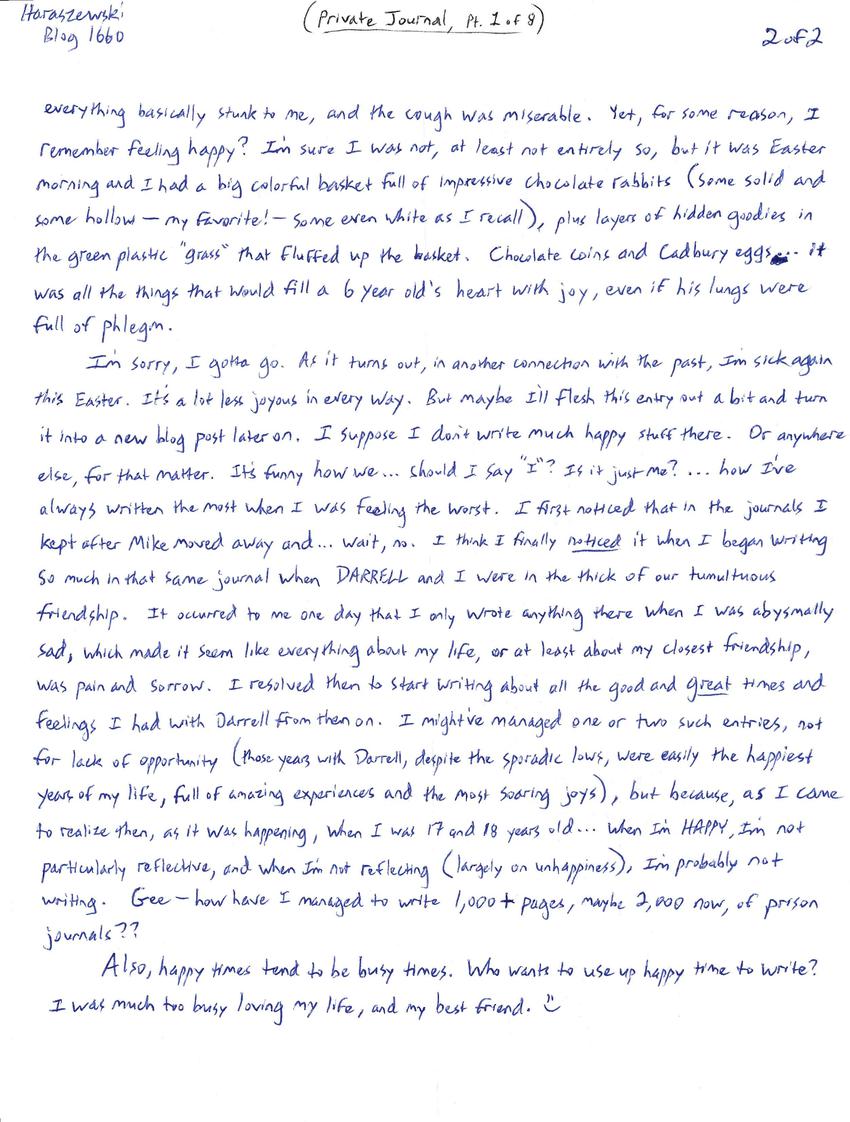 Haraszewski
Blog 1660
(Private Journal, Pt. 1 of 8)
2 of 2
everything basically stunk to me, and the cough was miserable. Yet, for some reason, I
remember feeling happy? I'm sure I was not, at least not entirely so, but it was Easter
morning and I had a big colorful basket full of impressive chocolate rabbits (some solid and
some hollow — my favorite! — some even white as I recall), plus layers of hidden goodies in
the green plastic "grass" that fluffed up the basket. Chocolate coins and Cadbury eggs... it
was all the things that would fill a 6 year old's heart with joy, even if his lungs were
full of phlegm.
I'm sorry, I gotta go. As it turns out, in another connection with the past, I'm sick again
this Easter. It's a lot less joyous in every way. But maybe I'll flesh this entry out a bit and turn
it into a new blog post later on. I suppose I don't write much happy stuff there. Or anywhere
else, for that matter. It's funny how we... should I say "I"? Is it just me? ... how I've
always written the most when I was feeling the worst. I first noticed that in the journals I
kept after Mike moved away and... wait, no. I think I finally noticed it when I began writing
so much in that same journal when DARRELL and I were in the thick of our tumultuous
friendship. It occurred to me one day that I only wrote anything there when I was abysmally
sad, which made it seem like everything about my life, or at least about my closest friendship,
was pain and sorrow. I resolved then to start writing about all the good and great times and
feelings I had with Darrell from then on. I might've managed one or two such entries, not
for lack of opportunity (those years with Darrell, despite the sporadic lows, were easily the happiest
years of my life, full of amazing experiences and the most soaring joys), but because, as I came
to realize then, as it was happening, when I was 17 and 18 years old... when I'm HAPPY, I'm not
particularly reflective, and when I'm not reflecting (largely on unhappiness), I'm probably not
writing. Gee — how have I managed to write 1,000+ pages, maybe 2,000 now, of prison
journals??
Also, happy times tend to be busy times. Who wants to use up happy time to write?
I was much too busy loving my life, and my best friend.